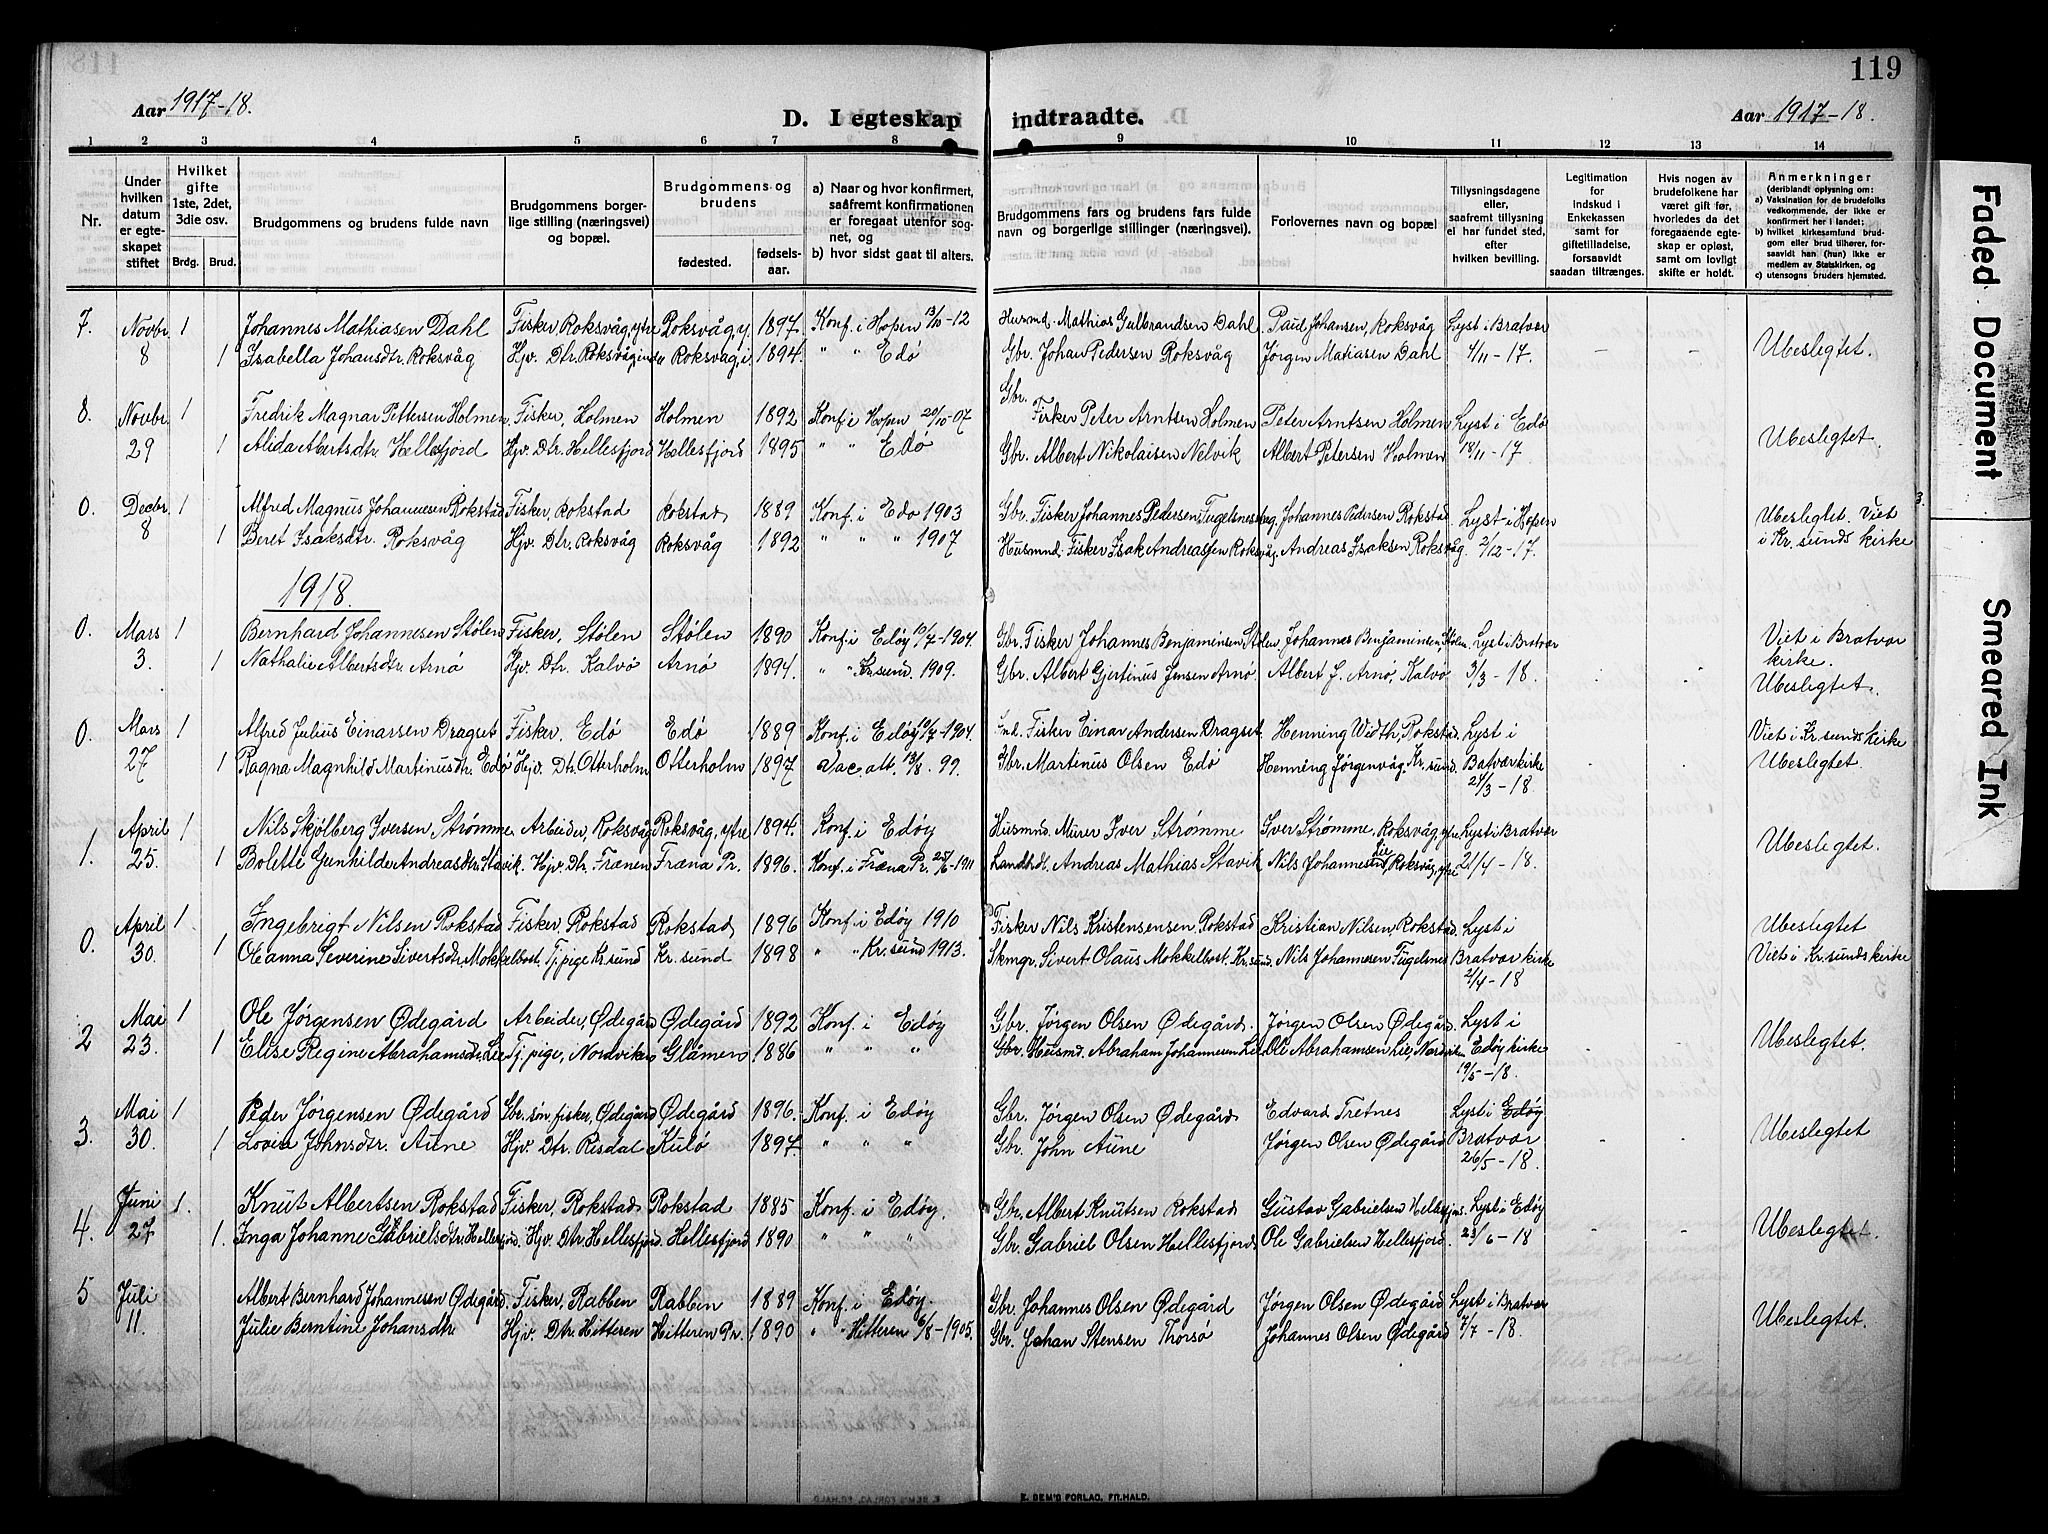 119
Aar 1917-18.
D. I egteskap indtraadte.
Aar 1917-18.
1 2 3 4 5 6 7 8 9 10 11 12 13 14
Nr.
Under hvilken datum er egteskapet stiftet
Hvilket gifte 1ste, 2det, 3die osv.
Brdg. Brud.
Brudgommens og brudens fulde navn
Brudgommens borgerlige stilling (næringsvei) og bopæl.
Brudgommens og brudens
fødested. fødselsaar.
a) Naar og hvor konfirmert, saafremt konfirmationen er foregaat utenfor sognet, og
b) hvor sidst gaat til alters.
Brudgommens fars og brudens fars fulde navn og borgerlige stillinger (næringsvei).
Forlovernes navn og bopæl
Tillysningsdagene eller, saafremt tillysning ei har fundet sted, efter hvilken bevilling.
Legitimation for indskud i Enkekassen samt for giftetilladelse, forsaavidt saadan tiltrænges.
Hvis nogen av brudefolkene har været gift før, hvorledes da det foregaaende egteskap er opløst, samt om lovligt skifte er holdt.
Anmerkninger
(deriblandt oplysning om:
a) Vaksination for de brudefolks vedkommende, der ikke er konfirmert her i landet;
b) hvilket kirkesamfund brudgom eller brud tilhører, forsaavidt han (hun) ikke er medlem av Statskirken, og
c) utensogns bruders hjemsted.
7. Novbr. 1 Johannes Mathiasen Dahl Fisker, Roksvåg, ytre Roksvåg, y. 1897. Konf. i Hopen 13/10-12 Husmd. Mathias Gulbrandsen Dahl Paul Johansen, Roksvåg Lyst i Bratvær
8 1 Isabella Johansdtr. Roksvåg Hjv. Dtr. Roksvåg, indre Roksvåg, i. 1894. " " Edø Gbr. Johan Pedersen Roksvåg Jørgen Matiasen Dahl 4/11-17. - - Ubeslegtet.
8. Novbr. 1 Fredrik Magnar Pettersen Holmen Fisker, Holmen Holmen 1892 Konf. i Hopen 20/10-07 Gbr. Fisker Peter Arntsen Holmen Peter Arntsen Holmen Lyst i Edø
29 1 Alida Albertsdtr. Hellesfjord Hjv. Dtr. Hellesfjord Hellesfjord 1895 " " Edø Gbr. Albert Nikolaisen Nelvik Albert Petersen Holmen 18/11-17 Ubeslegtet.
0. Decbr. 1 Alfred Magnus Johannesen Rokstad Fisker, Rokstad Rokstad 1889 Konf. i Edø 1903 Gbr. Fisker Johannes Pedersen Johannes Pedersen Rokstad Lyst i Hopen Ubeslegtet. Viet
8 1 Beret Isaksdtr. Roksvåg Hjv. Dtr. Roksvåg Roksvåg 1892 " " " 1907 Husmnd. Fisker Isak Andreassen Roksvåg, Andreas Isaksen Roksvåg 2/12-17. i Kr.sunds kirke
1918.
0. Mars 1 Bernhard Johannesen Stølen Fisker, Stølen Stølen 1890 Konf. i Edøy 10/7-1904. Gbr. Fisker Johannes Benjaminsen, Stølen, Johannes Benjaminsen, Stølen. Lyst i Bratvær Viet i Bratvær
3. 1 Nathalie Albertsdtr. Arnø Hjv. Dtr. Kalvø Arnø 1894. " " Kr.sund 1909. Gbr. Albert Gjertinus Jensen Arnø Albert J. Arnø, Kalvø 3/3-18. kirke.
Ubeslegtet.
0. Mars 1 Alfred Julius Einarsen Dragset Fisker, Edø Edø 1889 Konf. i Edøy 10/7-1904. Fisker Einar Andersen Dragset. Henning Width, Rokstad. Lyst i Viet i Kr.sunds kirke
27 1 Ragna Magnhild Martinusdtr. Edø Hjv. Dtr. Otterholm Otterholm 1897 Vac. att. 13/8. 99. Gbr. Martinus Olsen Edø Henning Jørgenvåg, Kr.sund. Bratvær kirke Ubeslegtet.
24/3-18.
1. April 1 Nils Skjølberg Iversen Strømme Arbeider, Roksvåg Roksvåg, ytre 1894. Konf. i Edøy Husmnd. Murer Iver Strømme Iver Strømme, Roksvåg, ytre Lyst i Bratvær
25. 1 Bolette Gunhilde Andreasdtr. Stavik. Hjv. Dtr. Frænen Fræna Pr. 1896. Konf. i Fræna Pr. 25/6-1911 Landhdl. Andreas Mathias Stavik Nils Johannes Lie, Roksvåg, ytre 21/4-18. Ubeslegtet.
0. April 1 Ingebrigt Nilsen Rokstad Fisker, Rokstad Rokstad 1896 Konf. i Edøy 1910 Fisker Nils Kristensensen Rokstad Kristian Nilsen, Rokstad. Lyst i Ubeslegtet
30. 1 Oleanna Severine Sivertsdtr. Mokkelbost. Tj.pige Kr.sund Kr.sund 1898 " " Kr.sund 1913. Skmgr. Sivert Olaus Mokkelbost. Kr.sund. Nils Johannesen Fugelsnes Bratvær kirke Viet i Kr.sunds kirke
2/4-18
2 Mai 1 Ole Jørgensen Ødegård Arbeider, Ødegård Ødegård 1892 Konf. i Edøy Gbr. Jørgen Olsen Ødegård. Jørgen Olsen Ødegård. Lyst i
23. 1 Elise Regine Abrahamsdtr. Lie Tj.pige, Nordviken Glåmen 1886 " " " Gbr. Husmd. Abraham Johannesen Lie Ole Abrahamsen Lie, Nordviken Edøy kirke Ubeslegtet.
19/5-18.
3. Mai 1 Peder Jørgensen Ødegård Gbr. søn, fisker, Ødegård Ødegård 1896. Konf. i Edøy Gbr. Jørgen Olsen Ødegård Edvard Tretnes Lyst i Edøy
30. 1 Lovise Johnsdtr. Aune Hjv. Dtr. Risdal Kulø 1897. " " " Gbr. John Aune Jørgen Olsen Ødegård Bratvær Ubeslegtet
26/5-18.
4. Juni 1. Knut Albertsen Rokstad Fisker, Rokstad Rokstad 1885 Konf. i Edøy. Gbr. Albert Knutsen Rokstad Gustav Gabrielsen Hellesfjord. Lyst i Edøy
27 1. Inga Johanne Gabrielsdtr. Hellesfjord. Hjv. Dtr. Hellesfjord. Hellesfjord 1890 " " " Gbr. Gabriel Olsen Hellesfjord Ole Gabrielsen Hellesfjord. 23/6-18 Ubeslegtet.
5 Juli Albert Bernhard Johannesen Ødegård. Fisker, Rabben Rabben 1889 Konf. i Edøy. Gbr. Johannes Olsen Ødegård Jørgen Olsen Ødegård Lyst i Bratvær
11. Julie Berntine Johansdtr Hjv. Dtr. Hitteren Hitteren Pr. 1890 " " Hitteren 6/8-1905. Gbr. Johan Stensen Thorsø Johannes Olsen Ødegård 7/7-18. Ubeslegtet.
E. SEM'S FORLAG, FR.HALD.
Faded Document
Smeared Ink